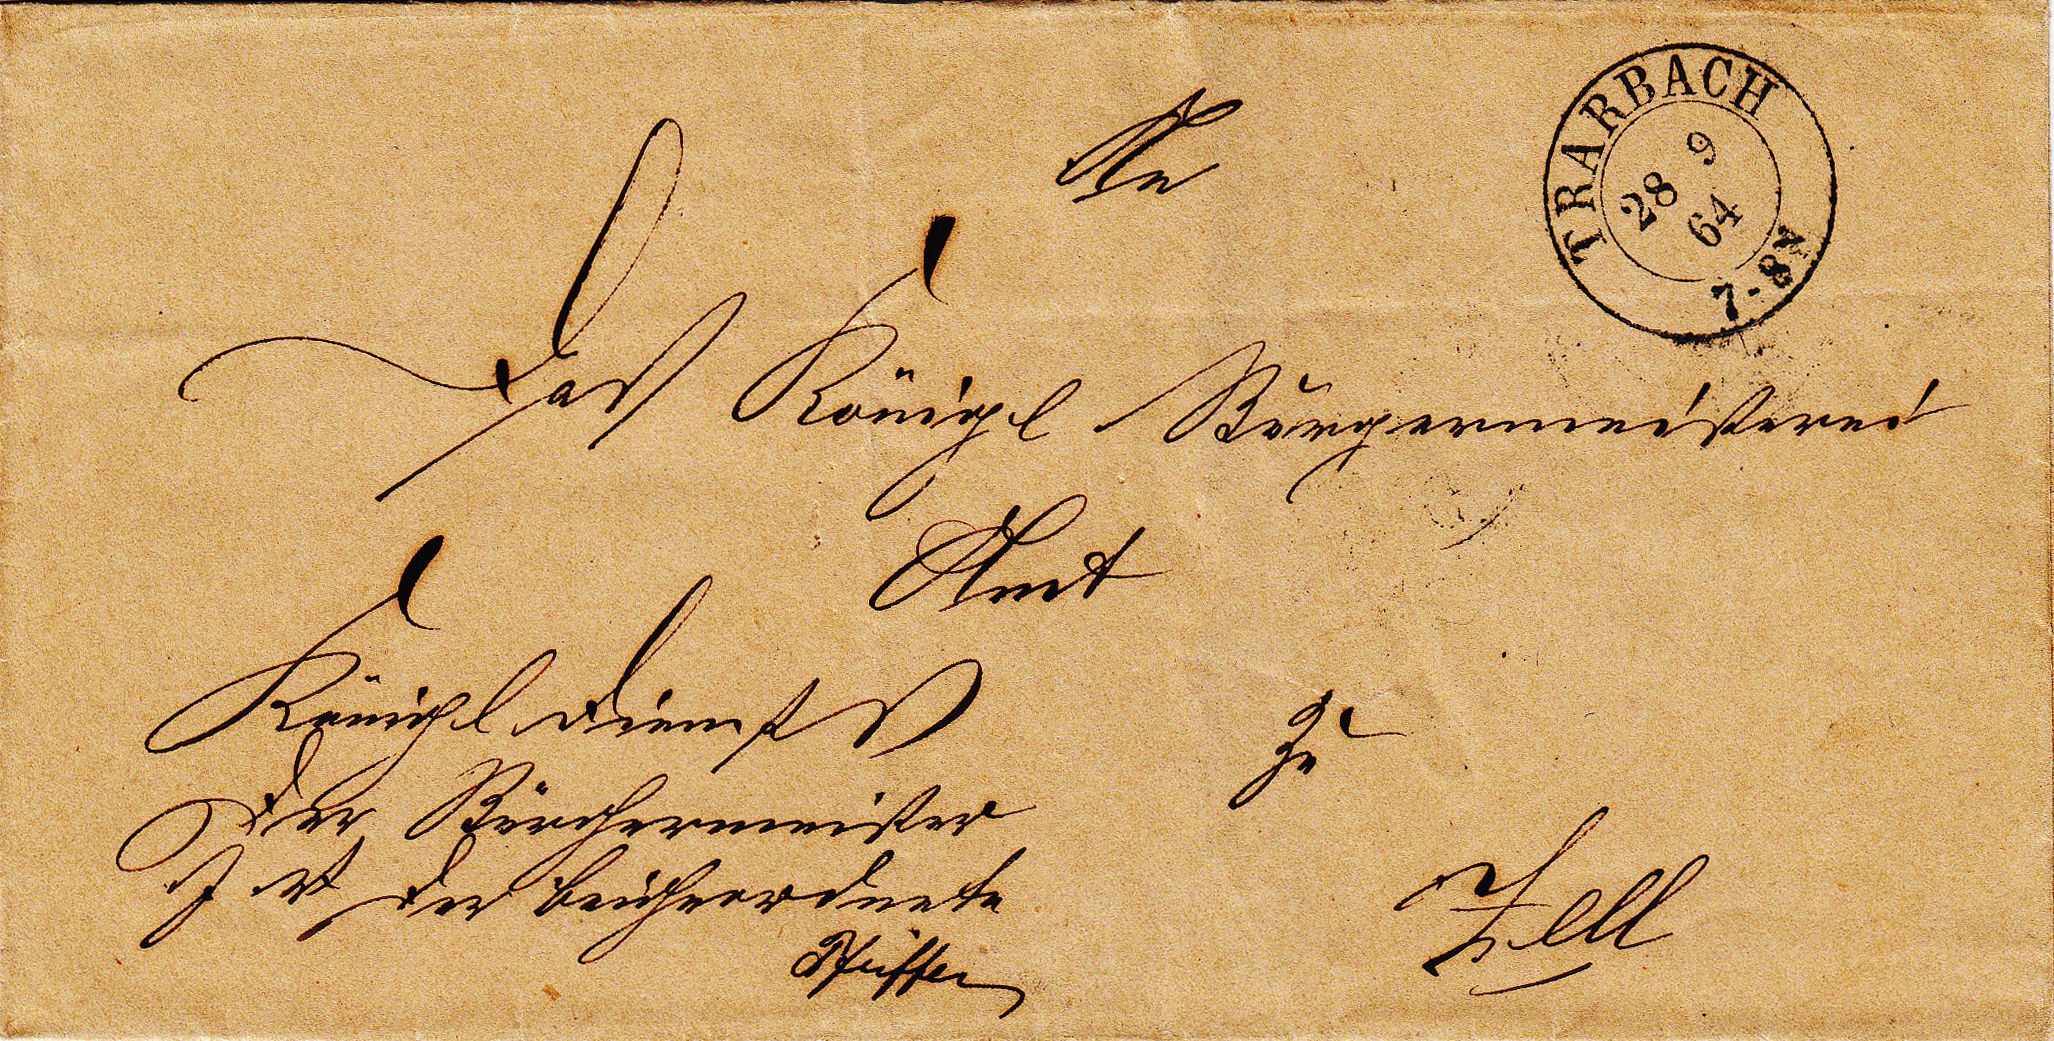 An
TRARBACH
28 9
64
7-8N
Das Königl Bürgermeisterei
Amt
Königl Dienst S
zu
der Bürgermeister
J. V.
der beigeordnete
Zell
Pfeiffer